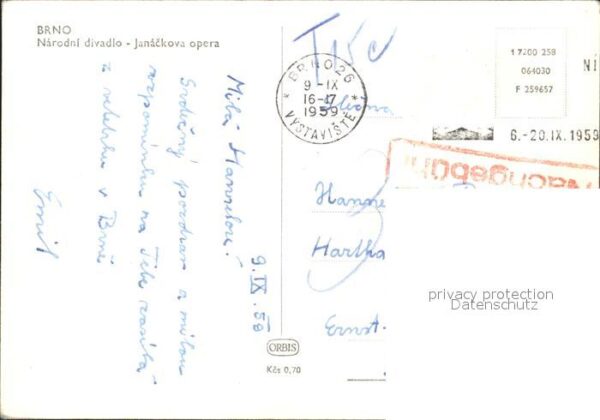 BRNO
Národní divadlo - Janáčkova opera
Milá Hannelori!
Srdečný pozdrav a milou
vzpomínku na Tebe zasílá
z veletrhu v Brně
Emil
9.IX.59
T 15c
BRNO 26
9.-IX
16-17
1959
* VÝSTAVIŠTĚ *
17200 258
064030
F 259657
6.-20.IX.1959
Nachgebühr
Slečna
Hanne
Hartha
Ernst-
ORBIS
Kčs 0,70
privacy protection
Datenschutz